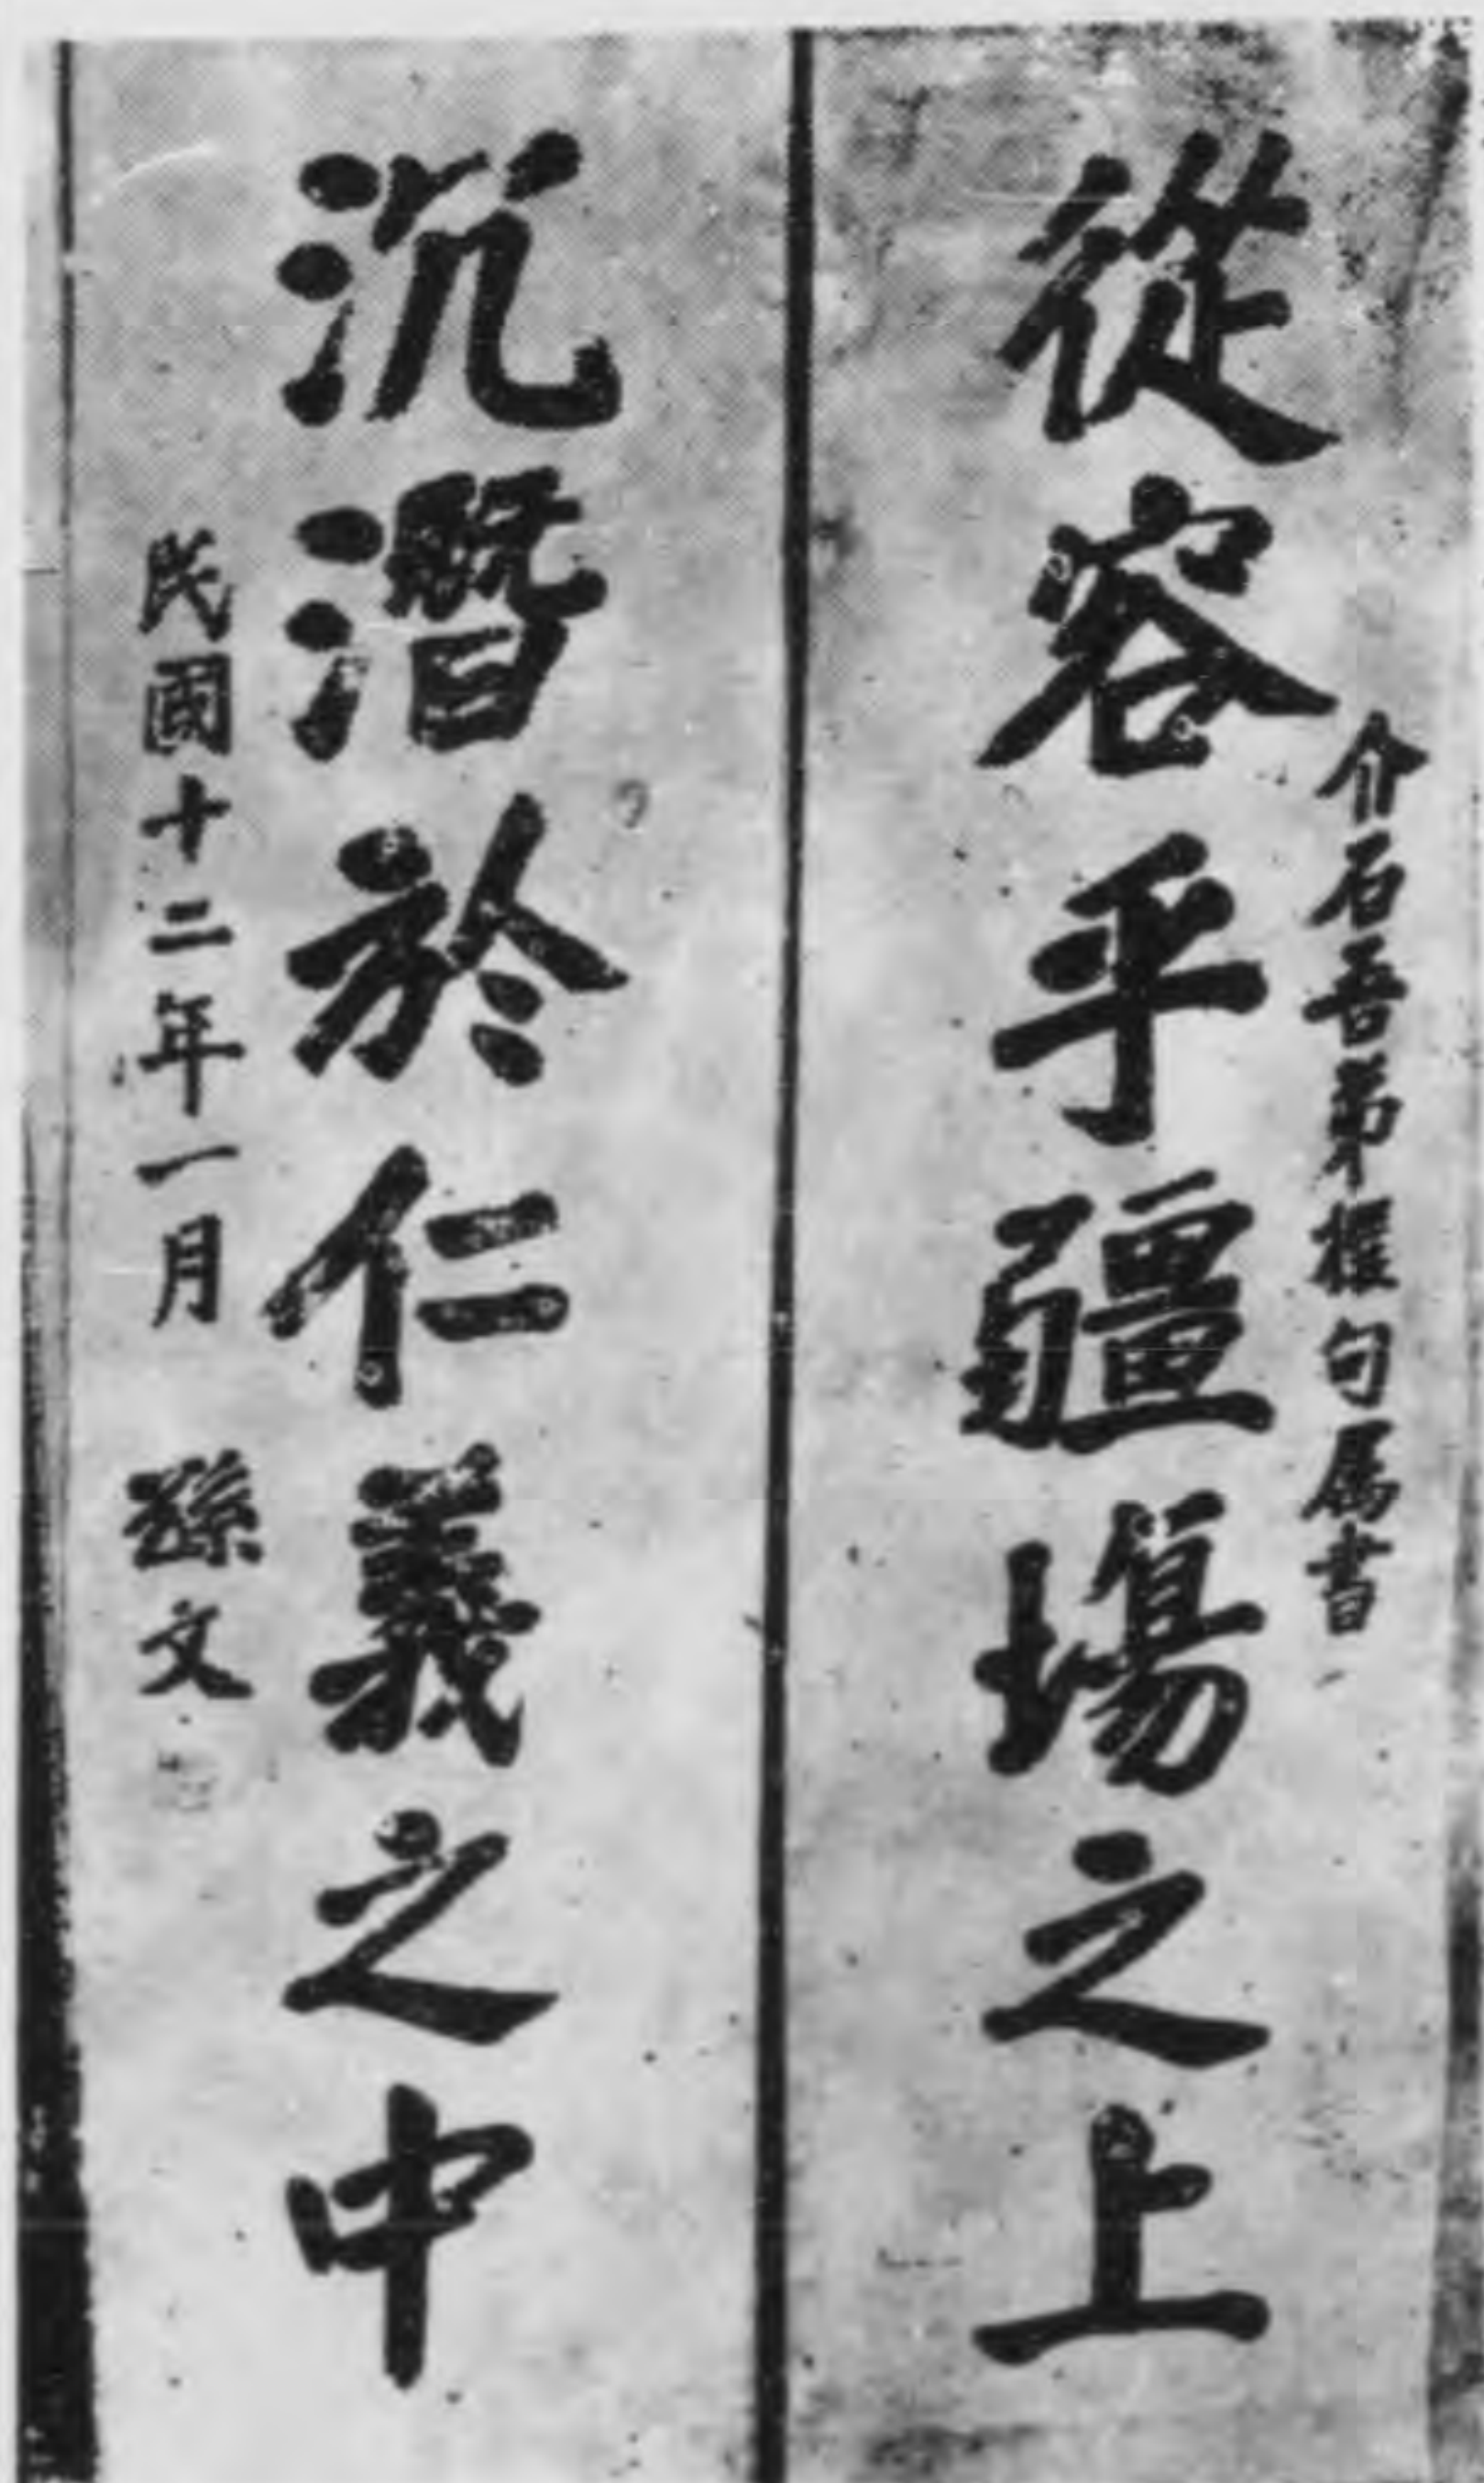 介石吾弟撰句属書
從容乎疆塲之上
沉潛於仁義之中
民國十二年一月 孫文